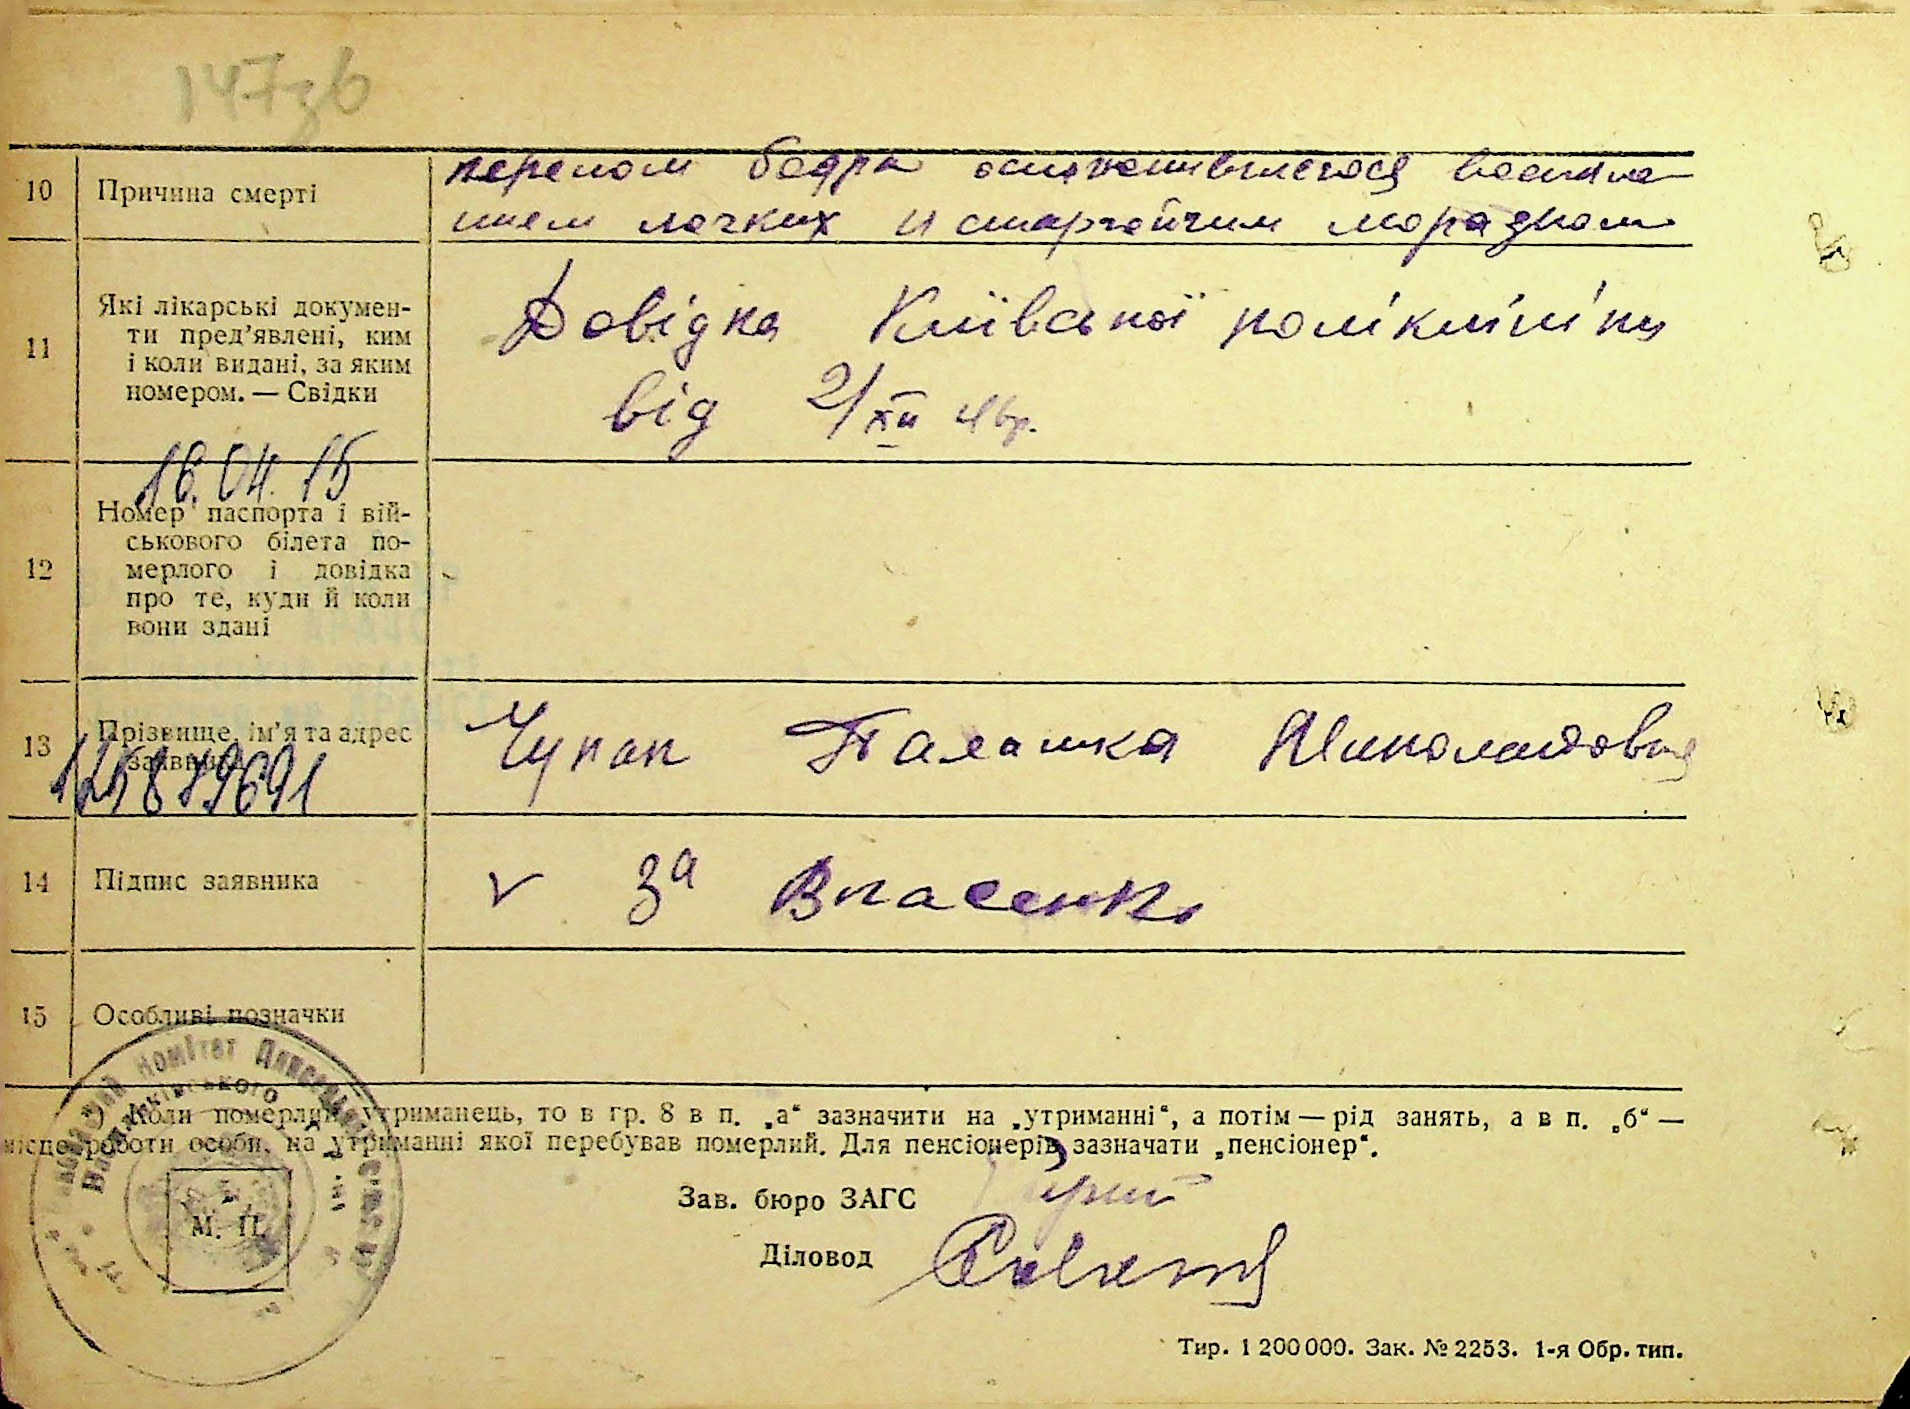 147зв
10 Причина смерті
перелом бедра осложнившегося воспале
нием легких и старческим маразмом
11 Які лікарські докумен-
ти пред'явлені, ким
і коли видані, за яким
номером. — Свідки
Довідка Київської поліклініки
від 2/XII
16.04.15
12 Номер паспорта і вій-
ськового білета по-
мерлого і довідка
про те, куди й коли
вони здані
13 Прізвище, ім'я та адрес
заявника
Чупап Палашка Миколаївна
125879691
14 Підпис заявника
v за Власенко
15 Особливі позначки
Комітет
) Коли померлий утриманець, то в гр. 8 в п. „а“ зазначити на „утриманні“, а потім — рід занять, а в п. „б“ —
місце роботи особи, на утриманні якої перебував померлий. Для пенсіонерів зазначати „пенсіонер“.
М. П.
Зав. бюро ЗАГС
Діловод
Тир. 1 200 000. Зак. № 2253. 1-я Обр. тип.